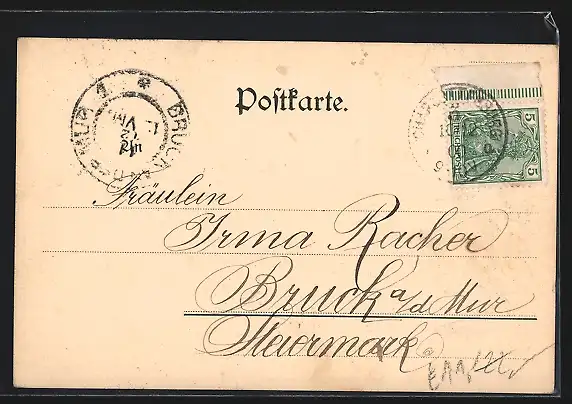 Postkarte.
BRUCK A.D. MUR 1
5 REICHSPOST 5
Fräulein
Irma Racher
Bruck a/d Mur
Steiermark